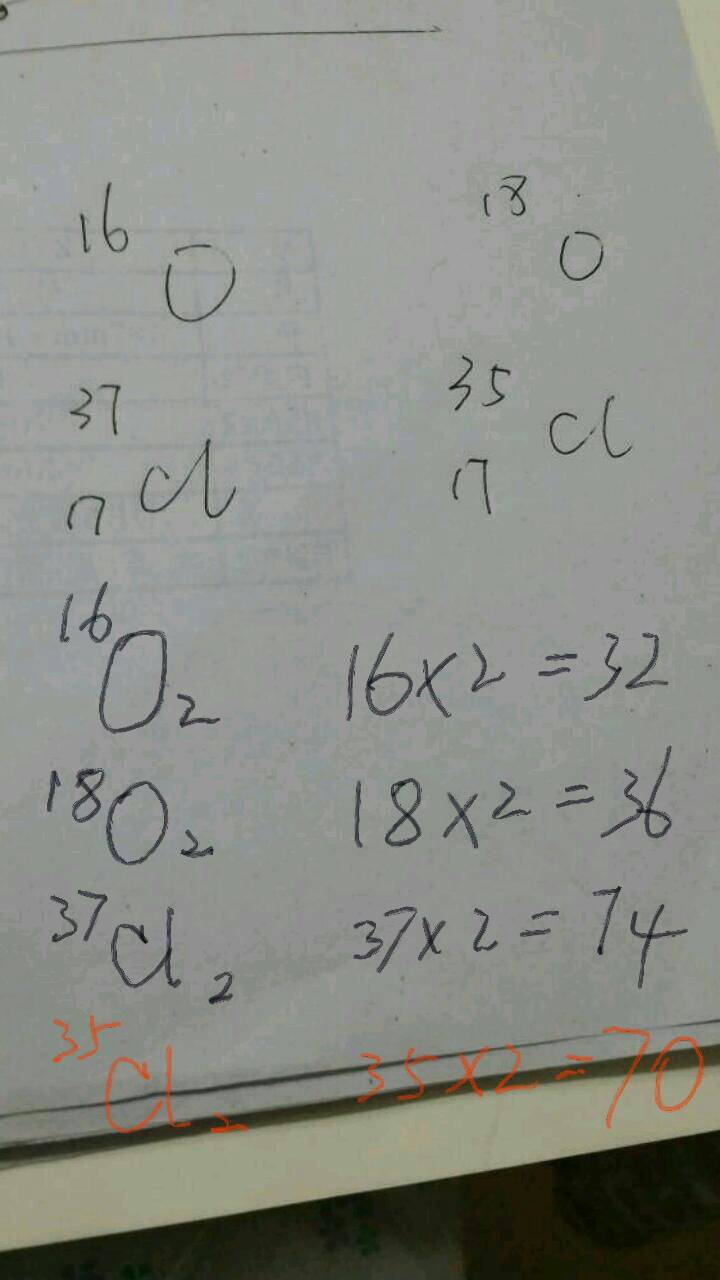 16 O 18 O
37 17 Cl 35 17 Cl
16 O2 16×2=32
18 O2 18×2=36
37 Cl2 37×2=74
35 Cl2 35×2=70